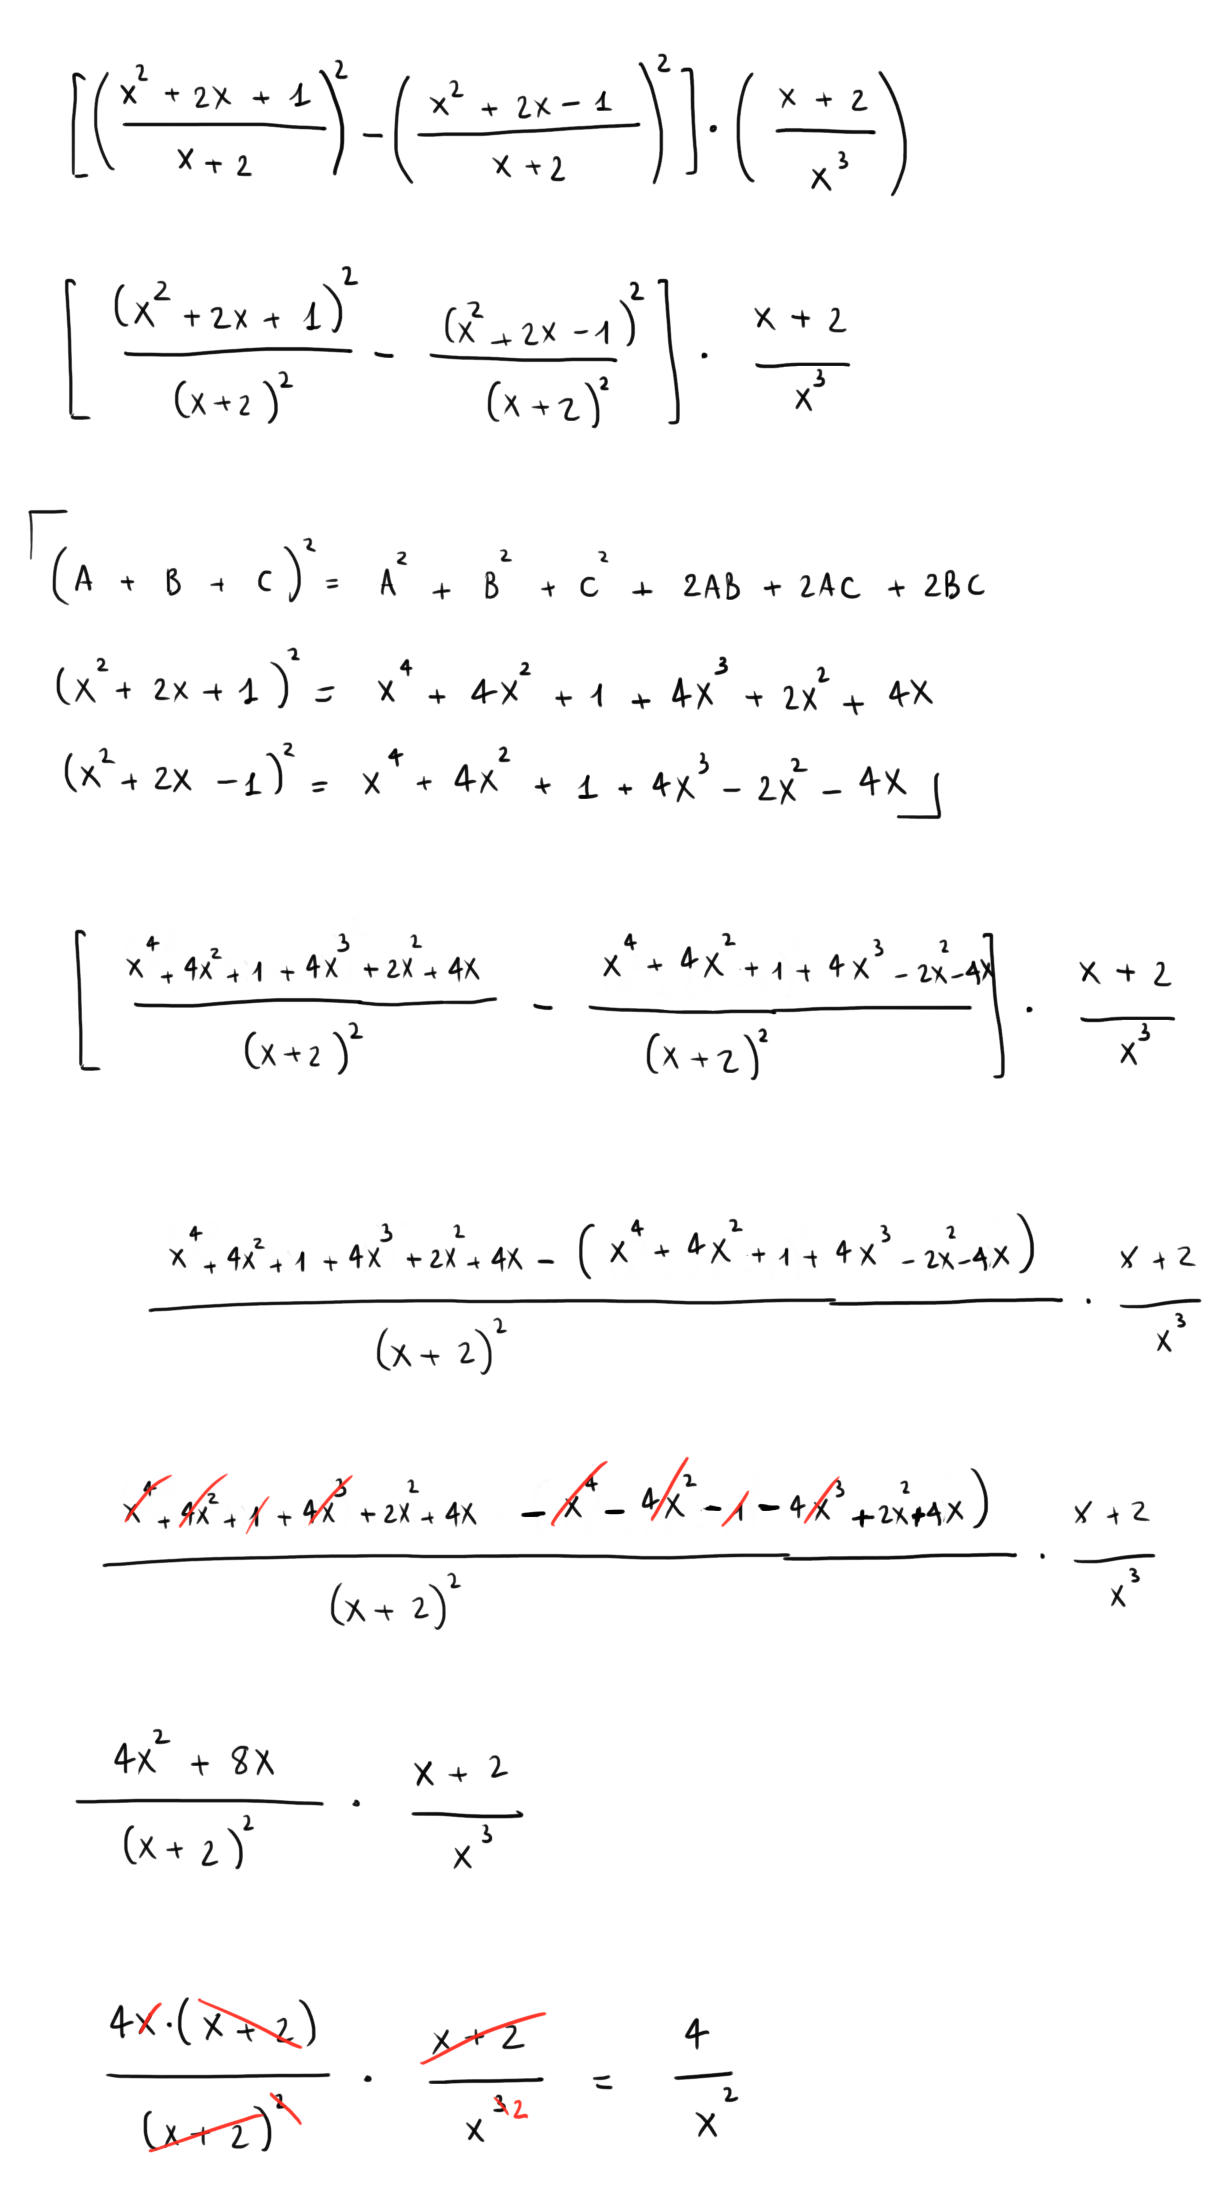 [((x² + 2x + 1)/(x + 2))² − ((x² + 2x − 1)/(x + 2))²] · ((x + 2)/x³)
[(x² + 2x + 1)²/(x + 2)² − (x² + 2x − 1)²/(x + 2)²] · (x + 2)/x³
(A + B + C)² = A² + B² + C² + 2AB + 2AC + 2BC
(x² + 2x + 1)² = x⁴ + 4x² + 1 + 4x³ + 2x² + 4x
(x² + 2x − 1)² = x⁴ + 4x² + 1 + 4x³ − 2x² − 4x
[(x⁴ + 4x² + 1 + 4x³ + 2x² + 4x)/(x + 2)² − (x⁴ + 4x² + 1 + 4x³ − 2x² − 4x)/(x + 2)²] · (x + 2)/x³
(x⁴ + 4x² + 1 + 4x³ + 2x² + 4x − (x⁴ + 4x² + 1 + 4x³ − 2x² − 4x))/(x + 2)² · (x + 2)/x³
x⁴ + 4x² + 1 + 4x³ + 2x² + 4x − x⁴ − 4x² − 1 − 4x³ + 2x² + 4x)/(x + 2)² · (x + 2)/x³
(4x² + 8x)/(x + 2)² · (x + 2)/x³
4x·(x + 2)/(x + 2)² · (x + 2)/x³ ² = 4/x²